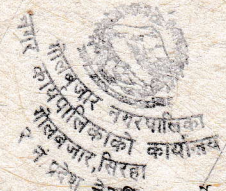 गोलबजार नगरपालिका
नगर कार्यपालिकाको कार्यालय
गोलबजार, सिरहा
२ नं प्रदेश